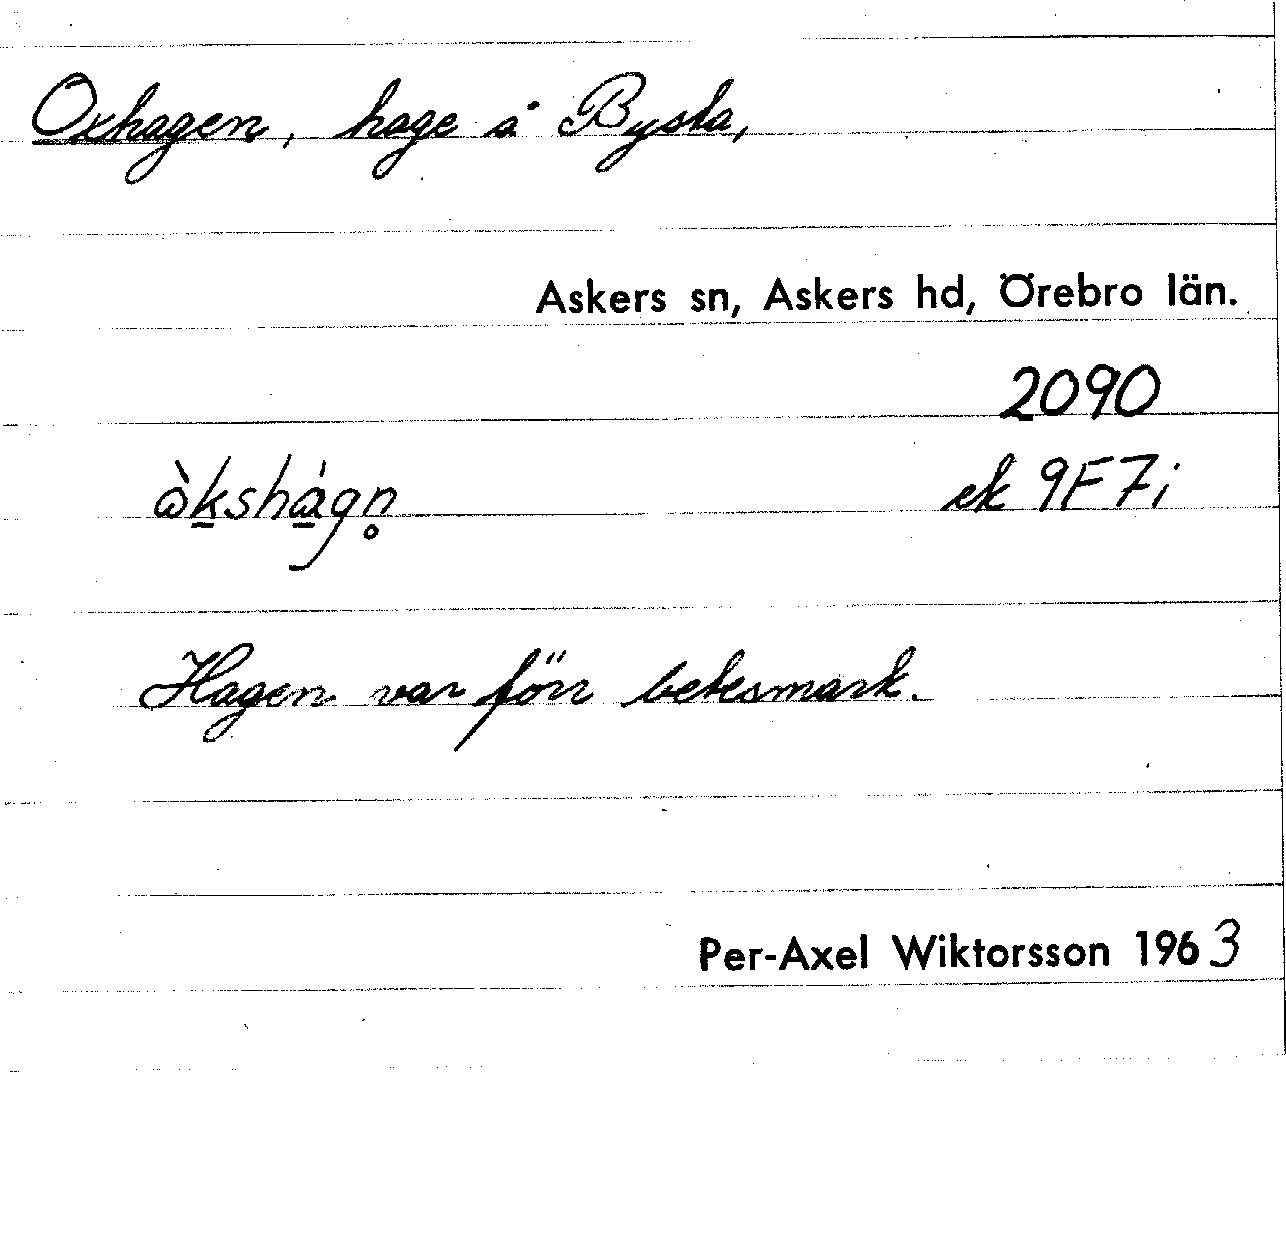 Oxhagen, hage å Bysta,
Askers sn, Askers hd, Örebro län.
2090
ek 9F7i
Hagen var förr betesmark.
Per-Axel Wiktorsson 1963